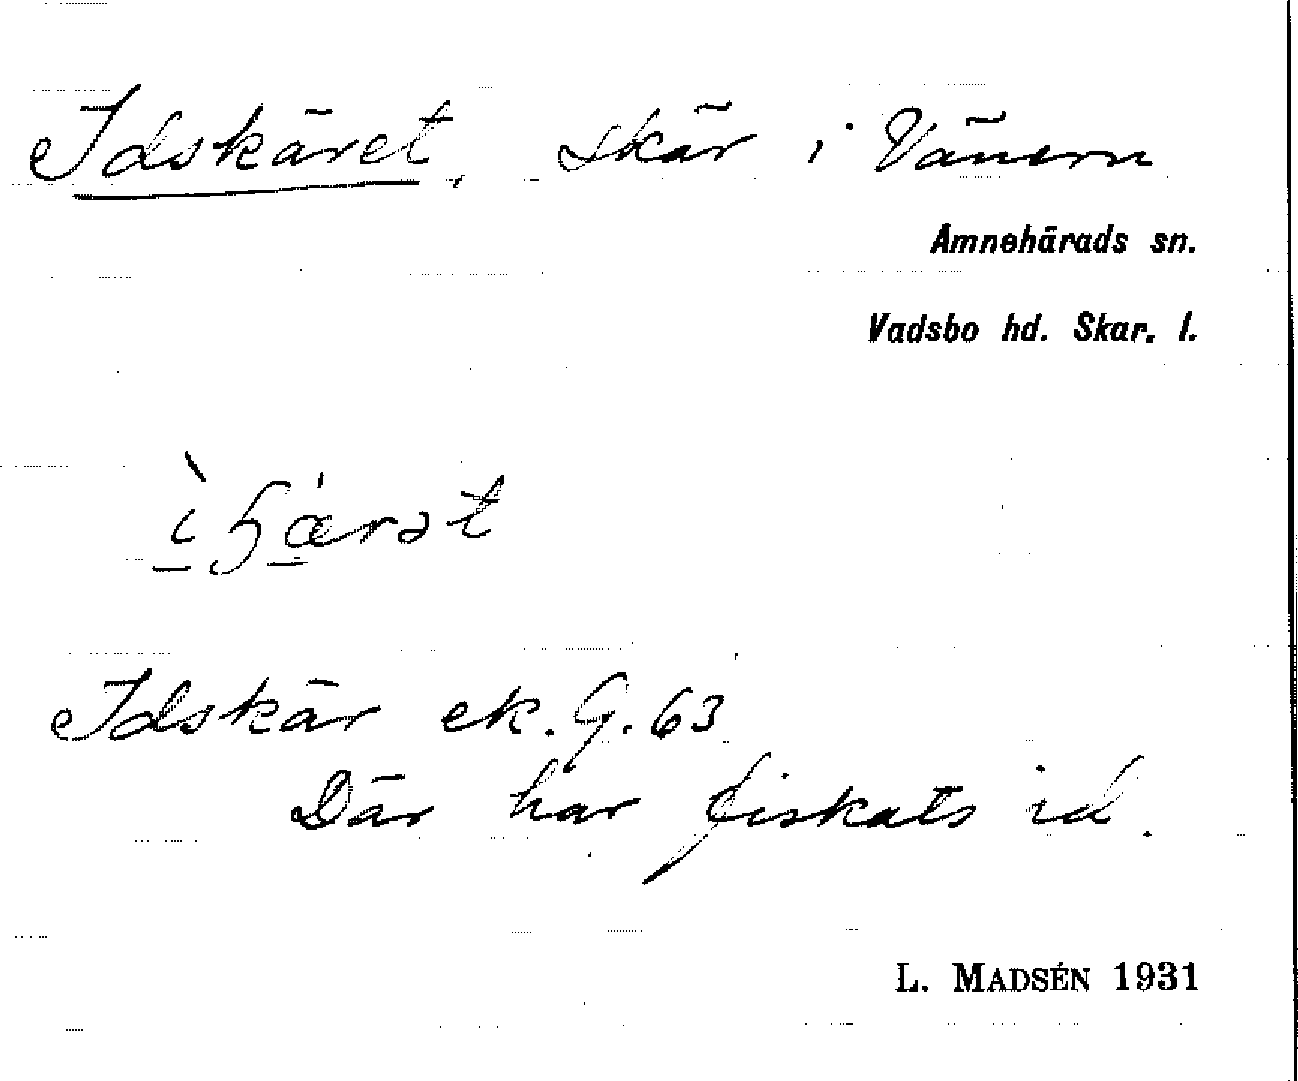 Idskäret, skär i Vänern
Amnehärads sn.
Vadsbo hd. Skar. l.
ìɧǽrət
Idskär ek. G. 63
Där har fiskats id.
L. MADSÉN 1931